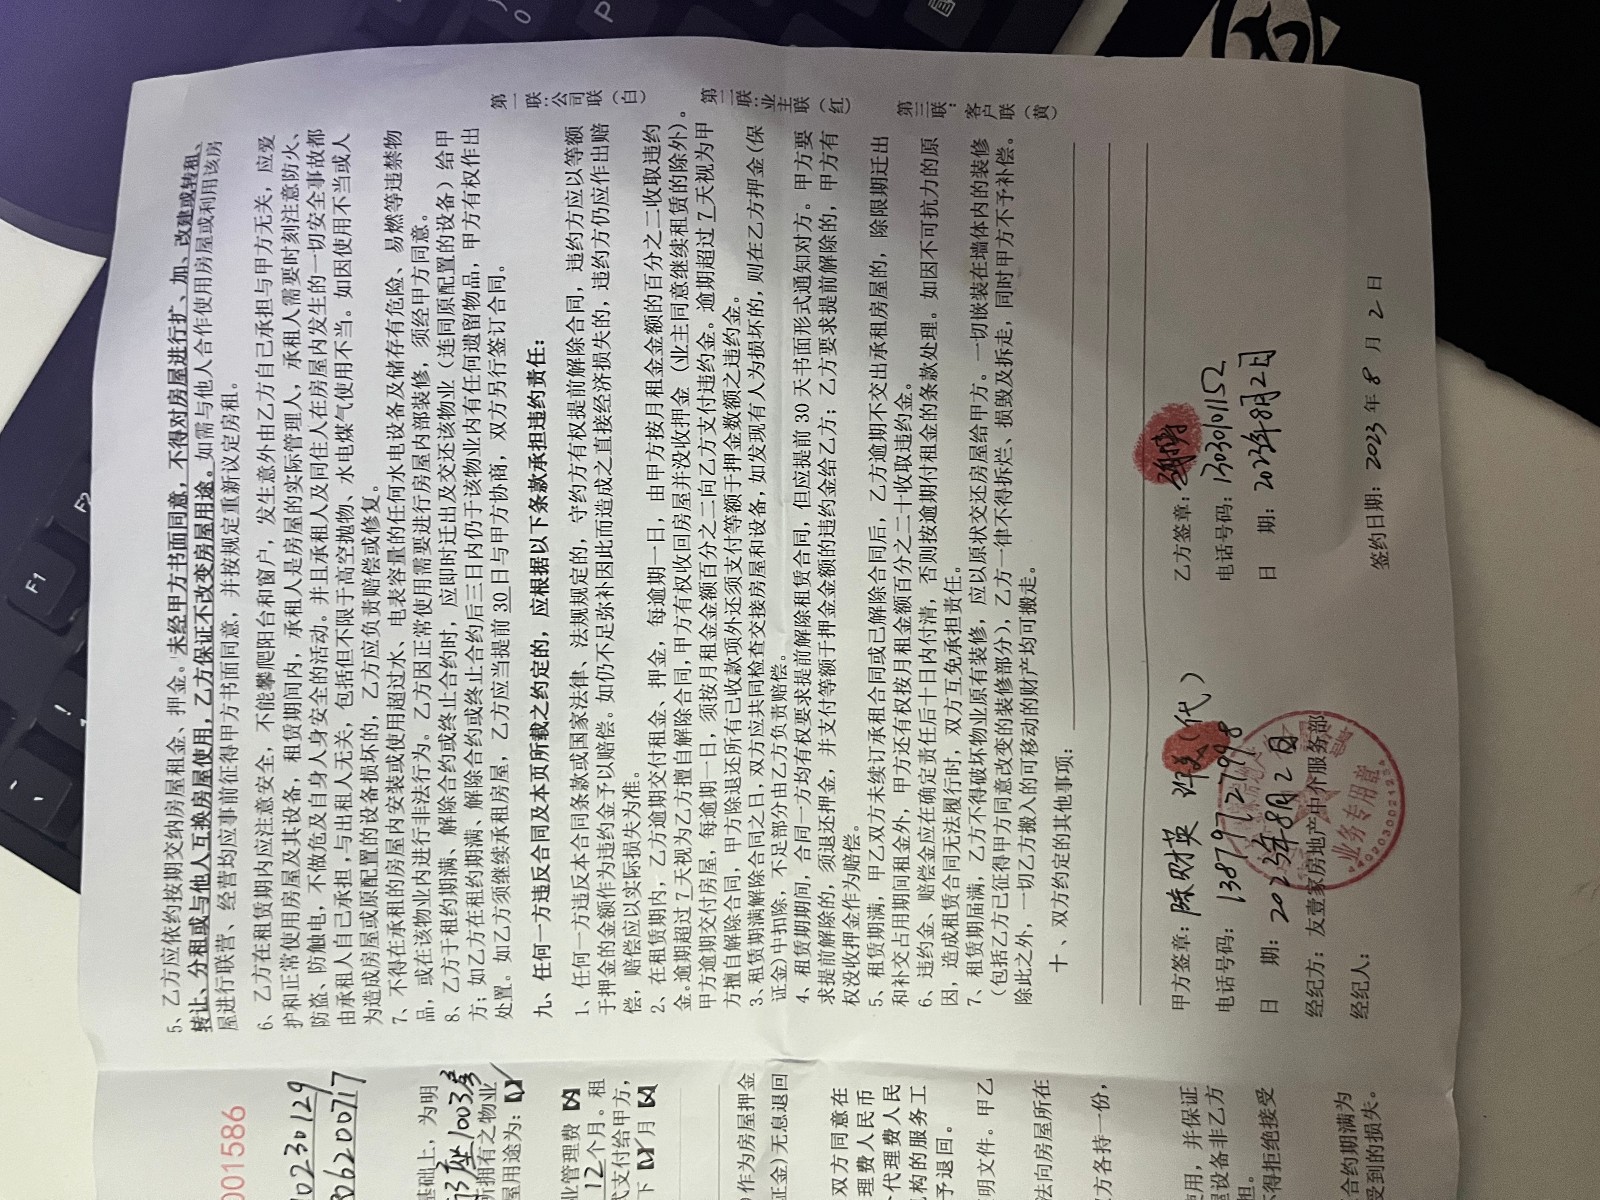 5、乙方应依约按期交纳房屋租金、押金。未经甲方书面同意，不得对房屋进行扩、加、改建或转租、
转让、分租或与他人互换房屋使用，乙方保证不改变房屋用途。如需与他人合作使用房屋或利用该房
屋进行联营、经营均应事前征得甲方书面同意，并按规定重新议定房租。
6、乙方在租赁期内应注意安全，不能攀爬阳台和窗户，发生意外由乙方自己承担与甲方无关，应爱
护和正常使用房屋及其设备，租赁期间内，承租人是房屋的实际管理人，承租人需要时刻注意防火、
防盗、防触电，不做危及自身人身安全的活动。并且承租人及同住人在房屋内发生的一切安全事故都
由承租人自己承担，与出租人无关，包括但不限于高空抛物、水电煤气使用不当。如因使用不当或人
为造成房屋或原配置的设备损坏的，乙方应负责赔偿或修复。
7、不得在承租的房屋内安装或使用超过水、电表容量的任何水电设备及储存有危险、易燃等违禁物
品，或在该物业内进行非法行为。乙方因正常使用需要进行房屋内部装修，须经甲方同意。
8、乙方于租约期满、解除合约或终止合约时，应即时迁出及交还该物业（连同原配置的设备）给甲
方；如乙方在租约期满、解除合约或终止合约后三日内仍于该物业内有任何遗留物品，甲方有权作出
处置。如乙方须继续承租房屋，乙方应当提前 30 日与甲方协商，双方另行签订合同。
九、任何一方违反合同及本页所载之约定的，应根据以下条款承担违约责任：
1、任何一方违反本合同条款或国家法律、法规规定的，守约方有权提前解除合同，违约方应以等额
于押金的金额作为违约金予以赔偿。如仍不足弥补因此而造成之直接经济损失的，违约方仍应作出赔
偿，赔偿应以实际损失为准。
2、在租赁期内，乙方逾期交付租金、押金，每逾期一日，由甲方按月租金金额的百分之二收取违约
金。逾期超过 7 天视为乙方擅自解除合同，甲方有权收回房屋并没收押金（业主同意继续租赁的除外）。
甲方逾期交付房屋，每逾期一日，须按月租金金额百分之二向乙方支付违约金。逾期超过 7 天视为甲
方擅自解除合同，甲方除退还所有已收款项外还须支付等额于押金数额之违约金。
3、租赁期满解除合同之日，双方应共同检查交接房屋和设备，如发现有人为损坏的，则在乙方押金(保
证金)中扣除，不足部分由乙方负责赔偿。
4、租赁期期间，合同一方均有权要求提前解除租赁合同，但应提前 30 天书面形式通知对方。甲方要
求提前解除的，须退还押金，并支付等额于押金金额的违约金给乙方；乙方要求提前解除的，甲方有
权没收押金作为赔偿。
5、租赁期满，甲乙双方未续订承租合同或已解除合同后，乙方逾期不交出承租房屋的，除限期迁出
和补交占用期间租金外，甲方还有权按月租金额百分之二十收取违约金。
6、违约金、赔偿金应在确定责任后十日内付清，否则按逾期付租金的条款处理。如因不可抗力的原
因，造成租赁合同无法履行时，双方互免承担责任。
7、租赁期届满，乙方不得破坏物业原有装修，应以原状交还房屋给甲方。一切嵌装在墙体内的装修
（包括乙方已征得甲方同意改变的装修部分），乙方一律不得拆烂、损毁及拆走，同时甲方不予补偿。
除此之外，一切乙方搬入的可移动的财产均可搬走。
十、双方约定的其他事项：
甲方签章：陈财英 （代）
电话号码：13879727998
日 期：2023年8月2日
经纪方：友壹家房地产中介服务部
经纪人：
业务专用章
乙方签章：
电话号码：13030101152
日 期：2023年8月2日
签约日期：2023 年 8 月 2 日
第一联：公司联（白）
第二联：业主联（红）
第三联：客户联（黄）
001586
基础上，为明
313座1003室
所拥有之物业
屋用途为：
业管理费
12 个月。租
式支付给甲方，
下 月
)作为房屋押金
证金)无息退回
双方同意在
理费人民币
代理费人民
机构的服务工
予退回。
明文件。甲乙
法向房屋所在
双方各持一份，
使用，并保证
屋设备非乙方
担。
不得拒绝接受
合约期满为
受到的损失。
F1
F2
P
0